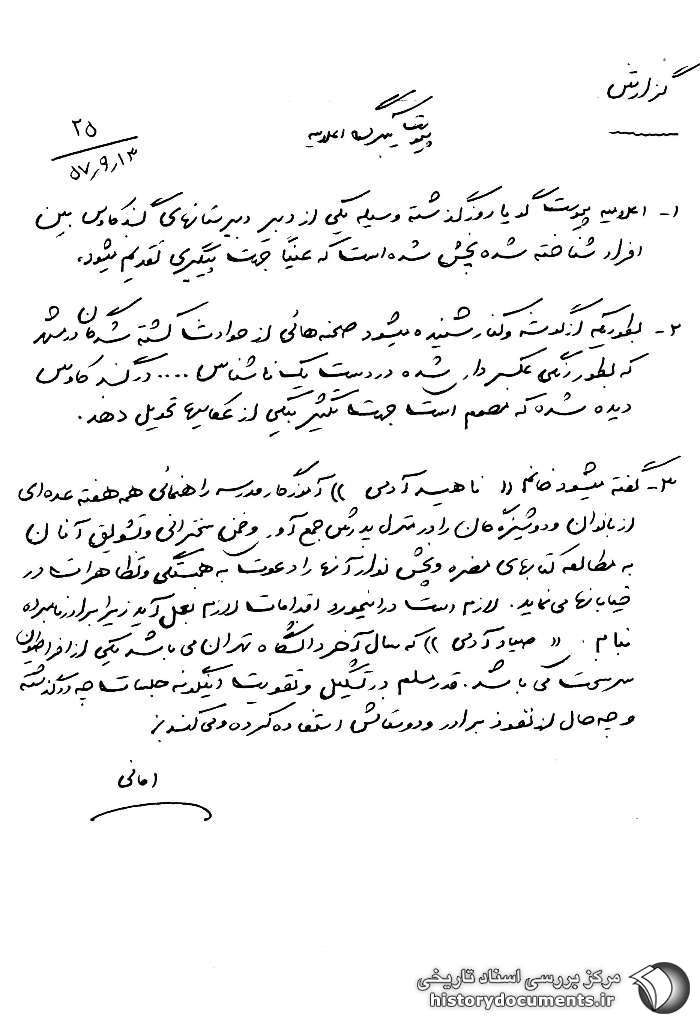 گزارش
پیوست یکبرگ اعلامیه
۲۵
۵۷٫۹٫۱۳
۱- اعلامیه پیوست گویا روز گذشته وسیله یکی از دبیر دبیرستانهای گنبد کاوس بین
افراد شناخته شده پخش شده است که عیناً جهت پیگیری تقدیم میشود.
۲- بطوریکه از گوشه و کنار شنیده میشود صحنه هائی از حوادث کشته شدگان در مشهد
که بطور رنگی عکسبرداری شده در دست یک ناشناس .... در گنبد کاوس
دیده شده که مصمم است جهت تکثیر بیکی از عکاسیها تحویل دهد.
۳- گفته میشود خانم (( ناهید آدمی )) آموزگار مدرسه راهنمائی همه هفته عده ای
از بانوان و دوشیزه گان را در منزل پدرش جمع آور و ضمن سخنرانی و تشویق آنان
به مطالعه کتابهای مضره و پخش نوار آنها را دعوت به همبستگی و تظاهرات در
خیابانها می نماید. لازم است در اینمورد اقدامات لازم بعمل آید زیرا برادر نامبرده
بنام (( صیاد آدمی )) که سال آخر دانشگاه تهران می باشد یکی از افراطیون
سرسخت می باشد. قدر مسلم در تشکیل و تقویت اینگونه جلسات چه در گذشته
و چه حال از نفوذ برادر و دوستانش استفاده کرده و می کند
امانی
مرکز بررسی اسناد تاریخی
historydocuments.ir